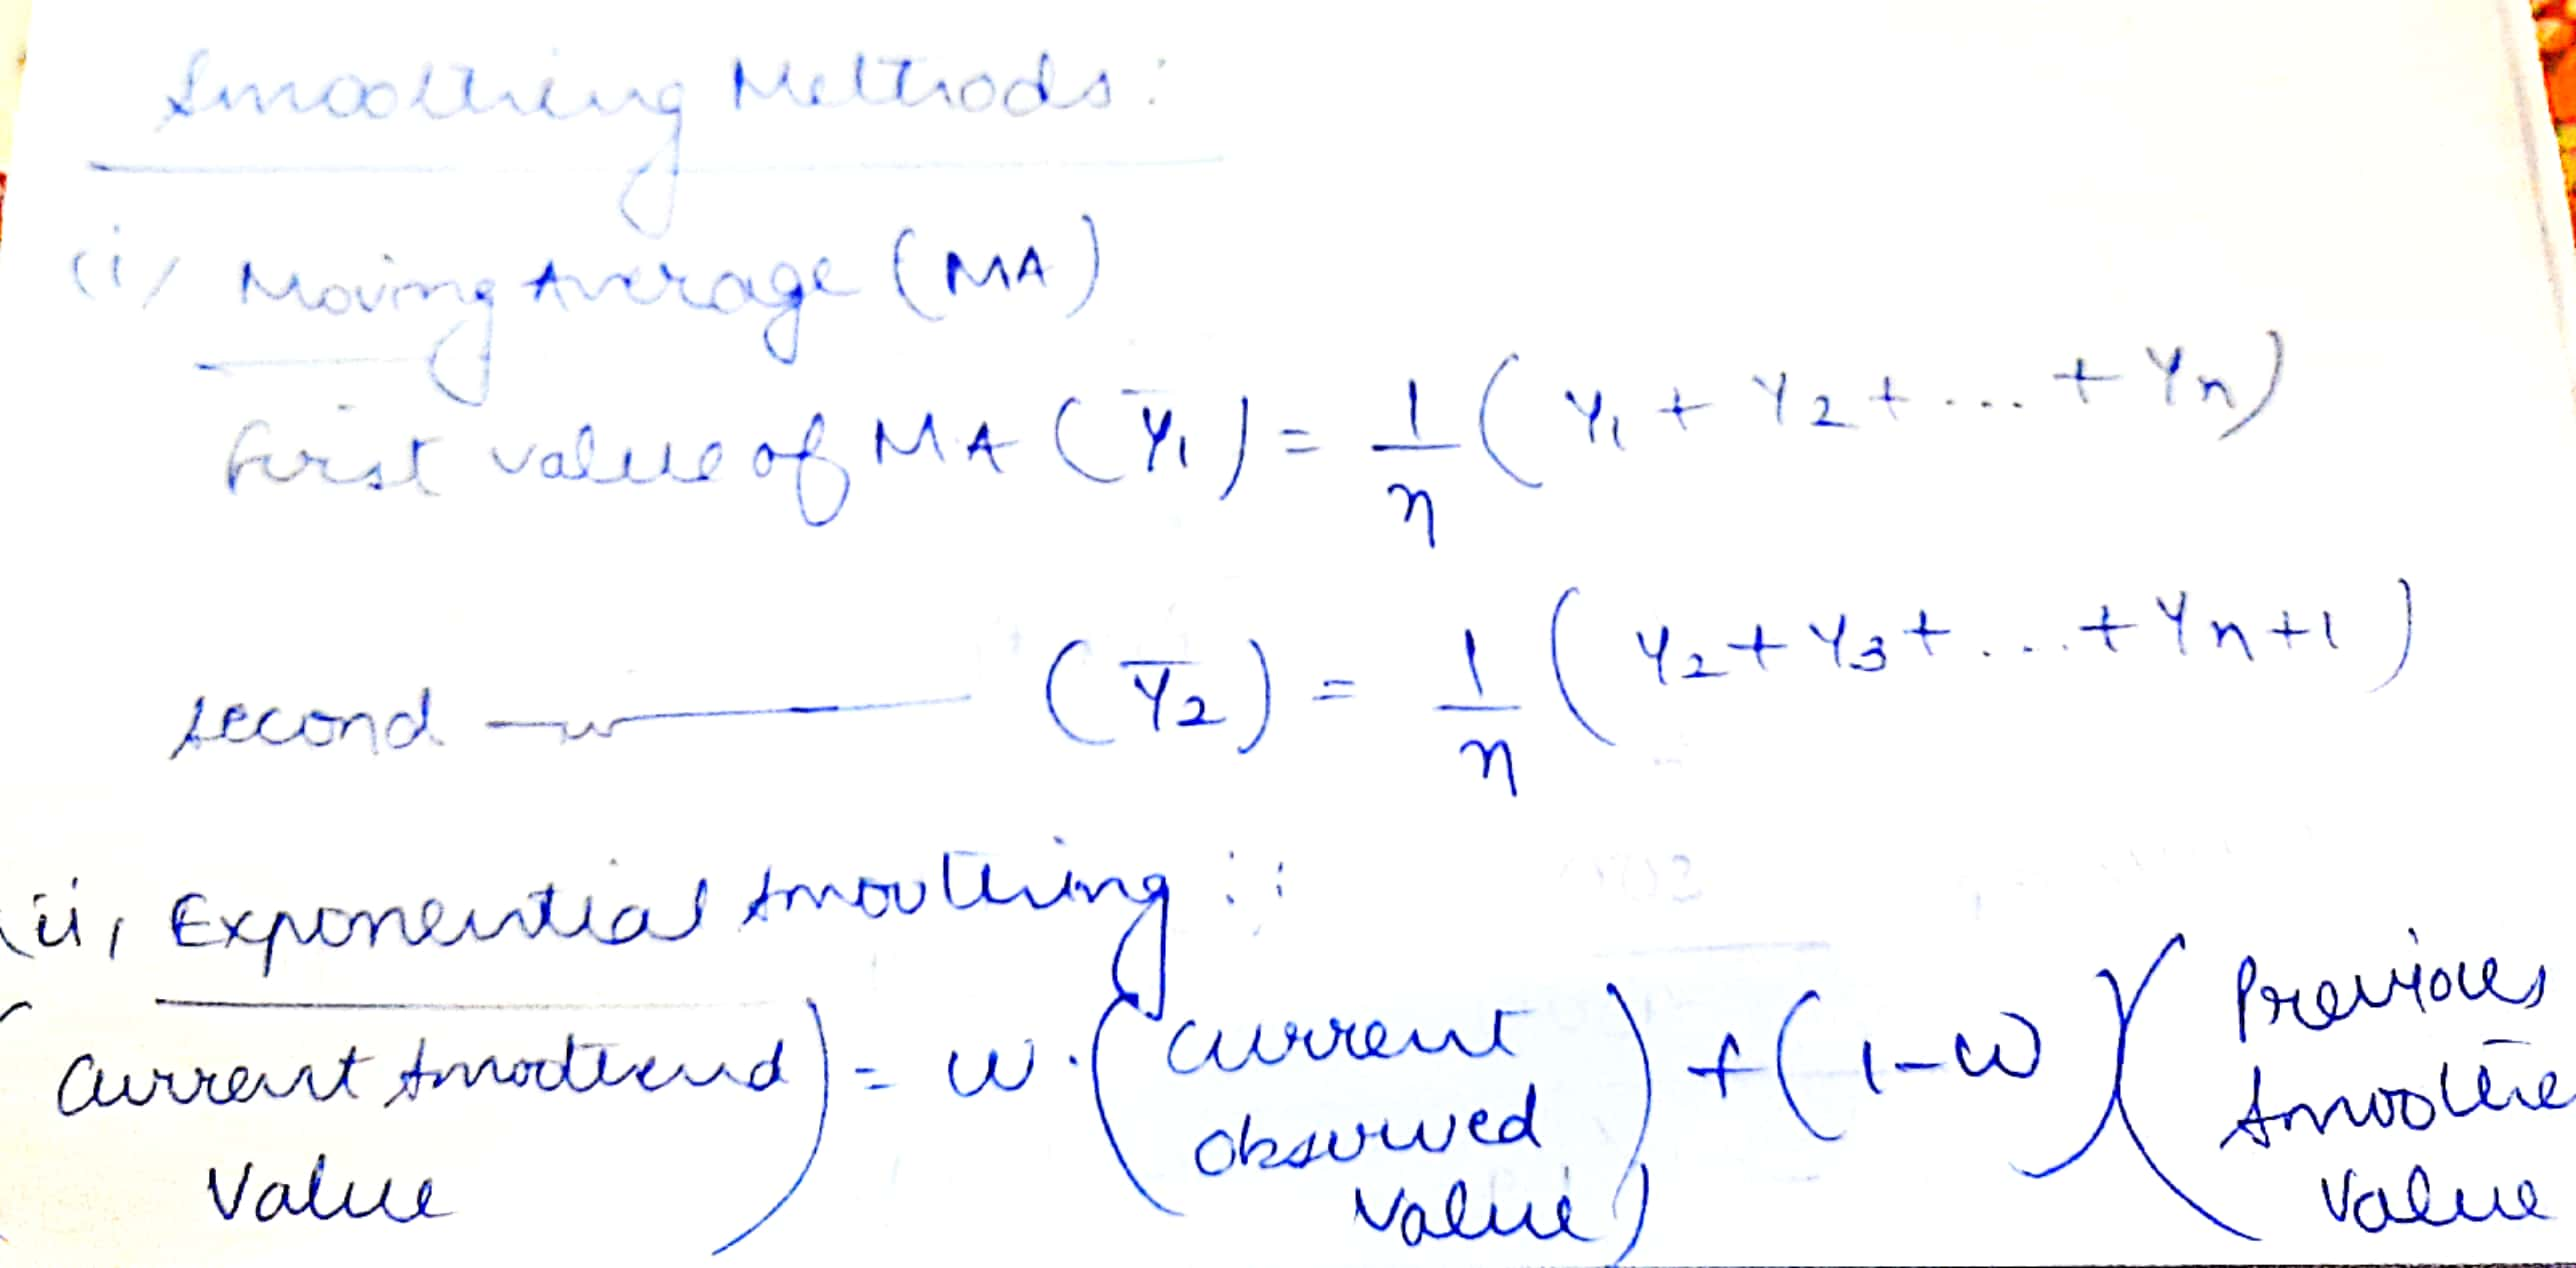 Smoothing Methods:
(i) Moving Average (MA)
First value of MA (Ȳ₁) = 1/n (Y₁ + Y₂ + ... + Yn)
second —〃— (Ȳ₂) = 1/n (Y₂ + Y₃ + ... + Yn+1)
(ii) Exponential Smoothing ::
(Current Smoothend Value) = w · (Current Observed Value) + (1-w) (Previous Smoothe Value